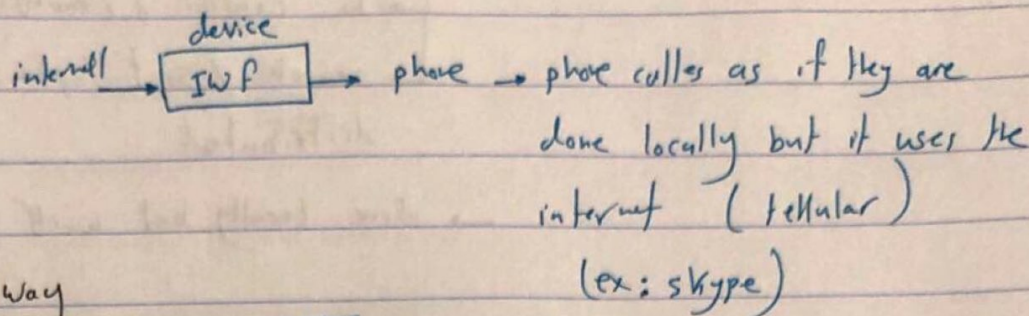 device
internell → IWF → phone → phone culles as if they are
done locally but it uses the
internet (tellular)
(ex: skype)
way